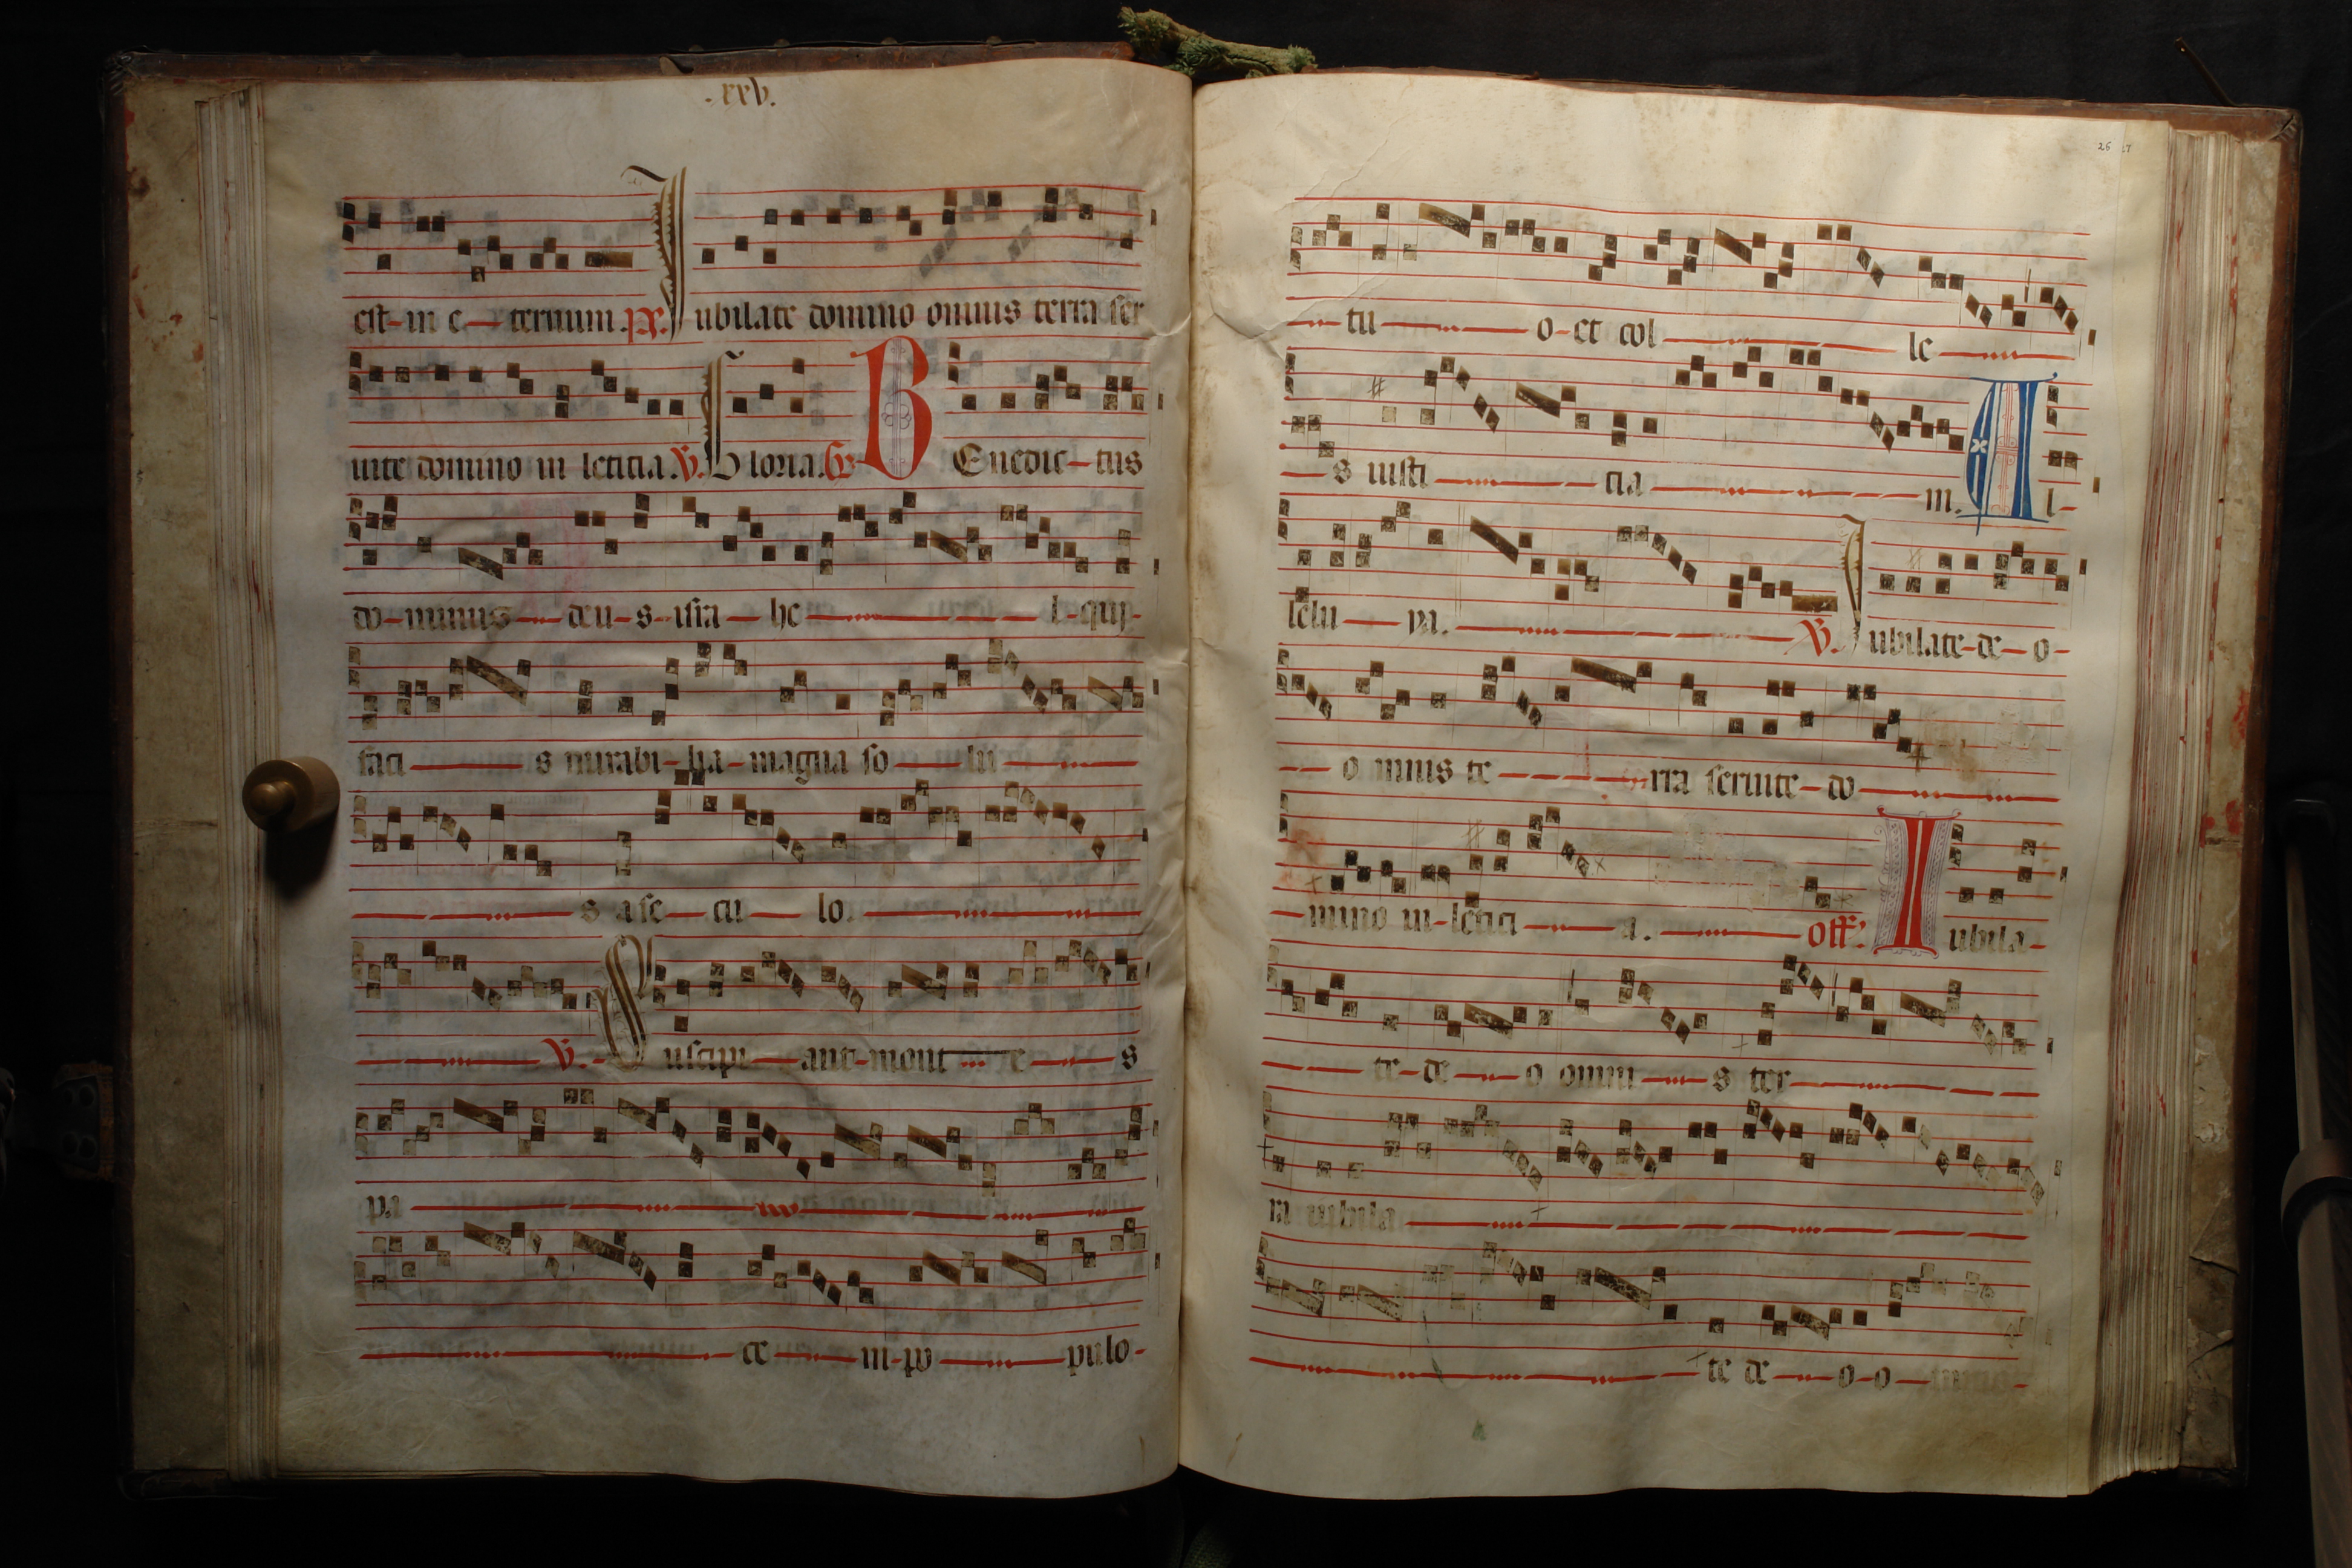 .xxv.
est-in e-ternum. ps. Jubilate domino omnis terra ser
uite domino in leticia. V. Gloria. Gr. BEnedic-tus
do-minus-deu-s-isra-he-l-qui-
faci-s mirabi-lia-magna so-lu-
s a se-cu-lo.
V. Suscipi-ant-mont-e-s
pa-
ce-in-po-pulo-
26 27
-tu-o-et col-le-
-s iusti-cia-m. Al-
lelu-ya. V. Iubilate-de-o-
-o mnis te-rra seruite-do-
-mino in-letici-a. off. Iubila-
-te-de-o omni-s ter-
ra iubila-
-te de-o-o-mnis-